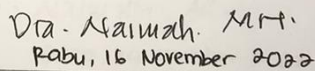 Dra. Naimah. MH.
Rabu, 16 November 2022